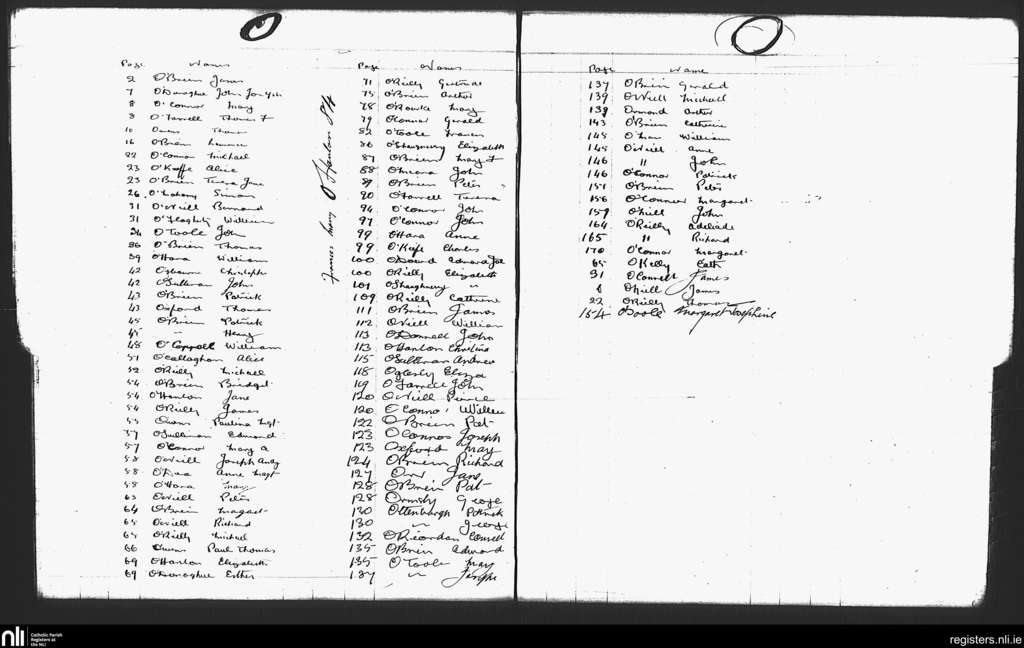 O
Page Names
2 O'Brien James
7 O'Donoghue John Joseph
8 O'Connor Mary
9 O'Farrell Thomas F
10 Owens Thomas
16 O'Brien
22 O'Connor Michael
23 O'Keffe Alice
25 O'Brien Teresa Jane
26 O'Lahony Simon
31 O'Neill Bernard
31 O'Flaghty William
34 O'Toole John
36 O'Brien Thomas
39 O'Hara William
42 Osbourne Christoph
42 O'Sullivan John
43 O'Brien Patrick
43 Oxford Thomas
45 O'Brien Patrick
45 " Henry
48 O'Carroll William
51 O'Callaghan Alice
52 O'Reilly Michael
54 O'Brien Bridget
54 O'Hanlon Jane
54 O'Reilly James
55 Owens Paulina Mgt
57 O'Sullivan Edmund
57 O'Connor Mary A
58 O'Neill Joseph Andy
58 O'Dea Anne Mgt
58 O'Hara Mary
63 O'Neill Peter
64 O'Brien Margaret
65 O'Neill Richard
65 O'Reilly Michael
66 Owens Paul Thomas
69 O'Hanlon Elizabeth
69 O'Donoghue Esther
Frances Mary O'Hanlon 84
Page Names
71 O'Reilly Gertrude
75 O'Brien Arthur
78 O'Rourke Mary
79 O'Connor Gerald
82 O'Toole Francis
86 O'Shaughnessy Elizabeth
87 O'Brien Mary F
88 O'Meara John
89 O'Brien Peter
90 O'Farrell Teresa
94 O'Connor John
97 O'Connor John
99 O'Hara Anne
99 O'Keefe Charles
100 O'Dowd Edward Jos
100 O'Reilly Elizabeth
101 O'Shaughnessy "
109 O'Reilly Catherine
111 O'Brien James
112 O'Neill William
113 O'Donnell John
113 O'Hanlon Christina
115 O'Sullivan Andrew
118 Oglesby Eliza
119 O'Farrell John
120 O'Neill Pierce
120 O'Connor William
122 O'Brien Pat
123 O'Connor Joseph
123 Oxford May
124 O'Brien Richard
127 Orr Jane
128 O'Brien Pat
128 Ormsby George
130 Ottenburgh Patrick
130 " George
132 O'Riordan Connell
135 O'Brien Edward
135 O'Toole May
137 " Joseph
O
Page Name
137 O'Brien Gerald
139 O'Neill Michael
139 Ormond Arthur
143 O'Brien Catherine
145 William
145 O'Neill Anne
146 " John
146 O'Connor Patrick
151 O'Brien Peter
156 O'Connor Margaret
157 O'Neill John
164 O'Reilly Adelaide
165 " Richard
170 O'Connor Margaret
65 O'Kelly Cath
31 O'Connell James
6 O'Neill James
22 O'Reilly Thomas
154 O'Toole Margaret Josephine
nli
Catholic Parish
Registers at
the NLI
registers.nli.ie